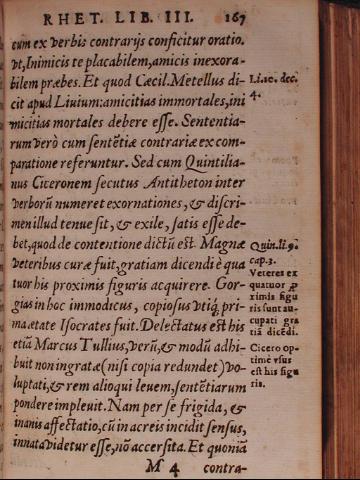 RHET. LIB. III. 167
cum ex verbis contrarijs conficitur oratio.
vt, Inimicis te placabilem, amicis inexora-
bilem præbes. Et quod Cæcil. Metellus di-
cit apud Liuium: amicitias immortales, ini
micitias mortales debere esse. Sententia-
rum verò cum sentẽtiæ contrariæ ex com-
paratione referuntur. Sed cum Quintilia-
nus Ciceronem secutus Antitheton inter
verborũ numeret exornationes, & discri-
men illud tenue sit, & exile, satis esse de-
bet, quod de contentione dictũ est. Magnæ
veteribus curæ fuit, gratiam dicendi è qua
tuor his proximis figuris acquirere. Gor-
gias in hoc immodicus, copiosus vtiq; pri-
ma ætate Isocrates fuit. Delectatus est his
etiã Marcus Tullius, verũ, & modũ adhi-
buit non ingratæ (nisi copia redundet) vo-
luptati, & rem alioqui leuem, sentẽtiarum
pondere impleuit. Nam per se frigida, &
inanis affectatio, cũ in acreis incidit sensus,
innata videtur esse, nõ accersita. Et quoniã
M 4 contra-
Li. 10. dec.
4.
Quin. li. 9.
cap. 3.
Veteres ex
quatuor ꝓ
ximis figu
ris sunt au-
cupati gra
tiã dicẽdi.
Cicero op-
timè vsus
est his figu
ris.